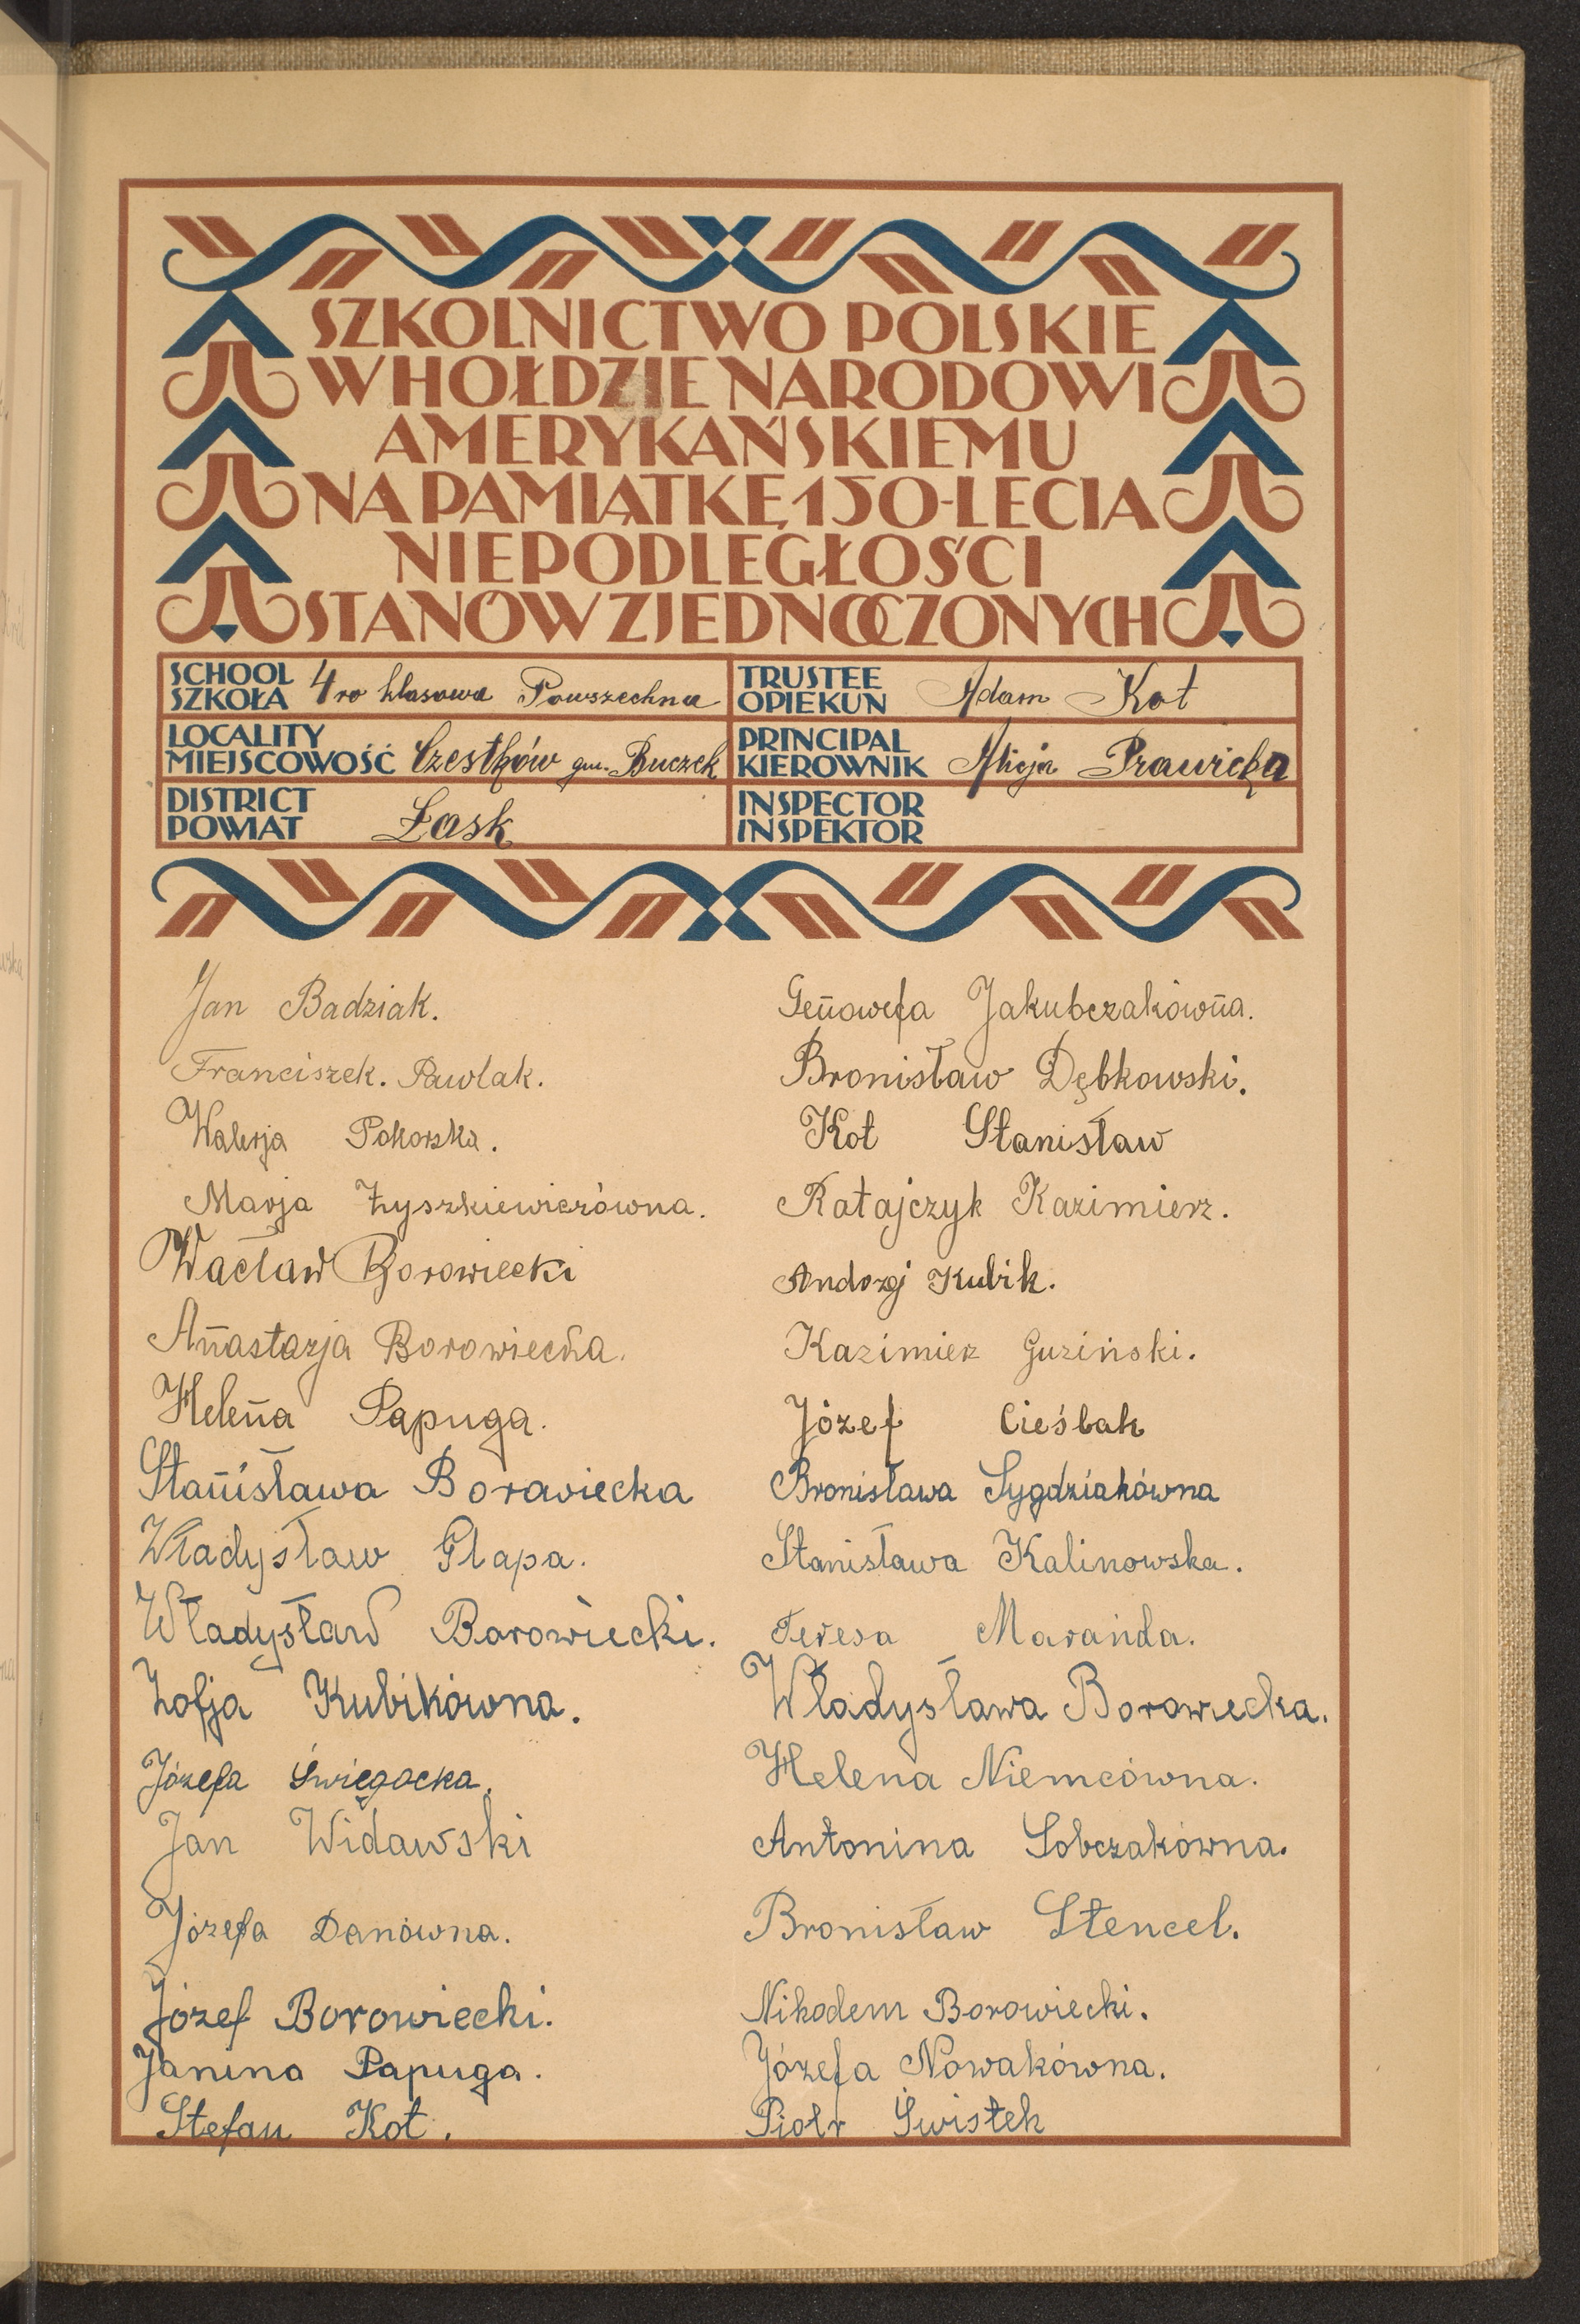 SZKOLNICTWO POLSKIE
W HOŁDZIE NARODOWI
AMERYKAŃSKIEMU
NA PAMIĄTKĘ 150-LECIA
NIEPODLEGŁOŚCI
STANÓW ZJEDNOCZONYCH
SCHOOL
SZKOŁA 4ro klasowa Powszechna
TRUSTEE
OPIEKUN Adam Kot
LOCALITY
MIEJSCOWOŚĆ Czestków gm. Buczek
PRINCIPAL
KIEROWNIK Alicja Prawicka
DISTRICT
POWIAT Łask
INSPECTOR
INSPEKTOR
Jan Badziak.
Franciszek. Pawlak.
Walerja Pokorska.
Marja Żyszkiewiczówna.
Wacław Borowiecki
Anastazja Borowiecka.
Helena Papuga.
Stanisława Borowiecka
Władysław Glapa.
Władysław Borowiecki.
Zofja Kubikówna.
Józefa Święgocka.
Jan Widawski
Józefa Danówna.
Józef Borowiecki.
Janina Papuga.
Stefan Kot.
Genowefa Jakubczakówna.
Bronisław Dębkowski.
Kot Stanisław
Ratajczyk Kazimierz.
Andrzej Kubik.
Kazimierz Guziński.
Józef Cieślak
Bronisława Sygdziakówna
Stanisława Kalinowska.
Teresa Maranda.
Władysława Borowiecka.
Helena Niemcówna.
Antonina Sobczakówna.
Bronisław Stencel.
Nikodem Borowiecki.
Józefa Nowakówna.
Piotr Świstek